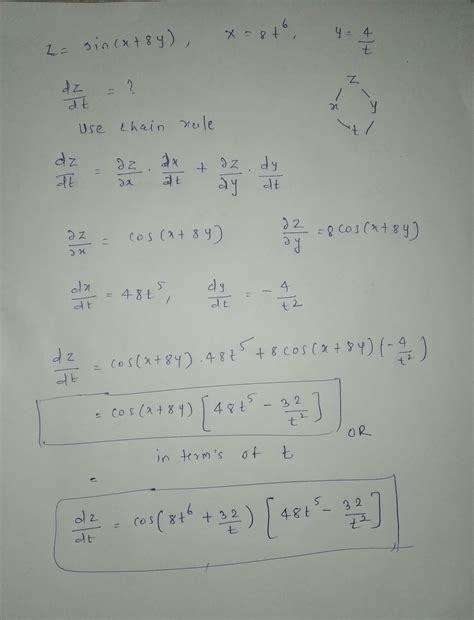 z = sin(x+8y), x = 8t⁶, y = 4/t
dz/dt = ?
z
x y
t
Use chain rule
dz/dt = ∂z/∂x · dx/dt + ∂z/∂y · dy/dt
∂z/∂x = cos(x+8y) ∂z/∂y = 8cos(x+8y)
dx/dt = 48t⁵, dy/dt = - 4/t²
dz/dt = cos(x+8y) · 48t⁵ + 8cos(x+8y) (-4/t²)
= cos(x+8y) [48t⁵ - 32/t²]
OR
in term's of t
=
dz/dt = cos(8t⁶ + 32/t) [48t⁵ - 32/t²]